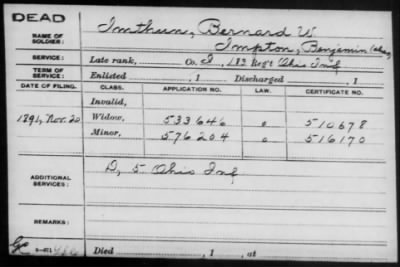 DEAD
NAME OF SOLDIER: Imthun, Bernard W.
Impton, Benjamin (alias)
SERVICE: Late rank, Co. I, 183 Reg't Ohio Inf
TERM OF SERVICE: Enlisted , 1 Discharged , 1
DATE OF FILING. CLASS. APPLICATION NO. LAW. CERTIFICATE NO.
Invalid,
1891, Nov. 20 Widow, 533646 o 510678
Minor, 576204 o 516170
ADDITIONAL SERVICES: D, 5 Ohio Inf
REMARKS:
3-451
Died , 1 , at